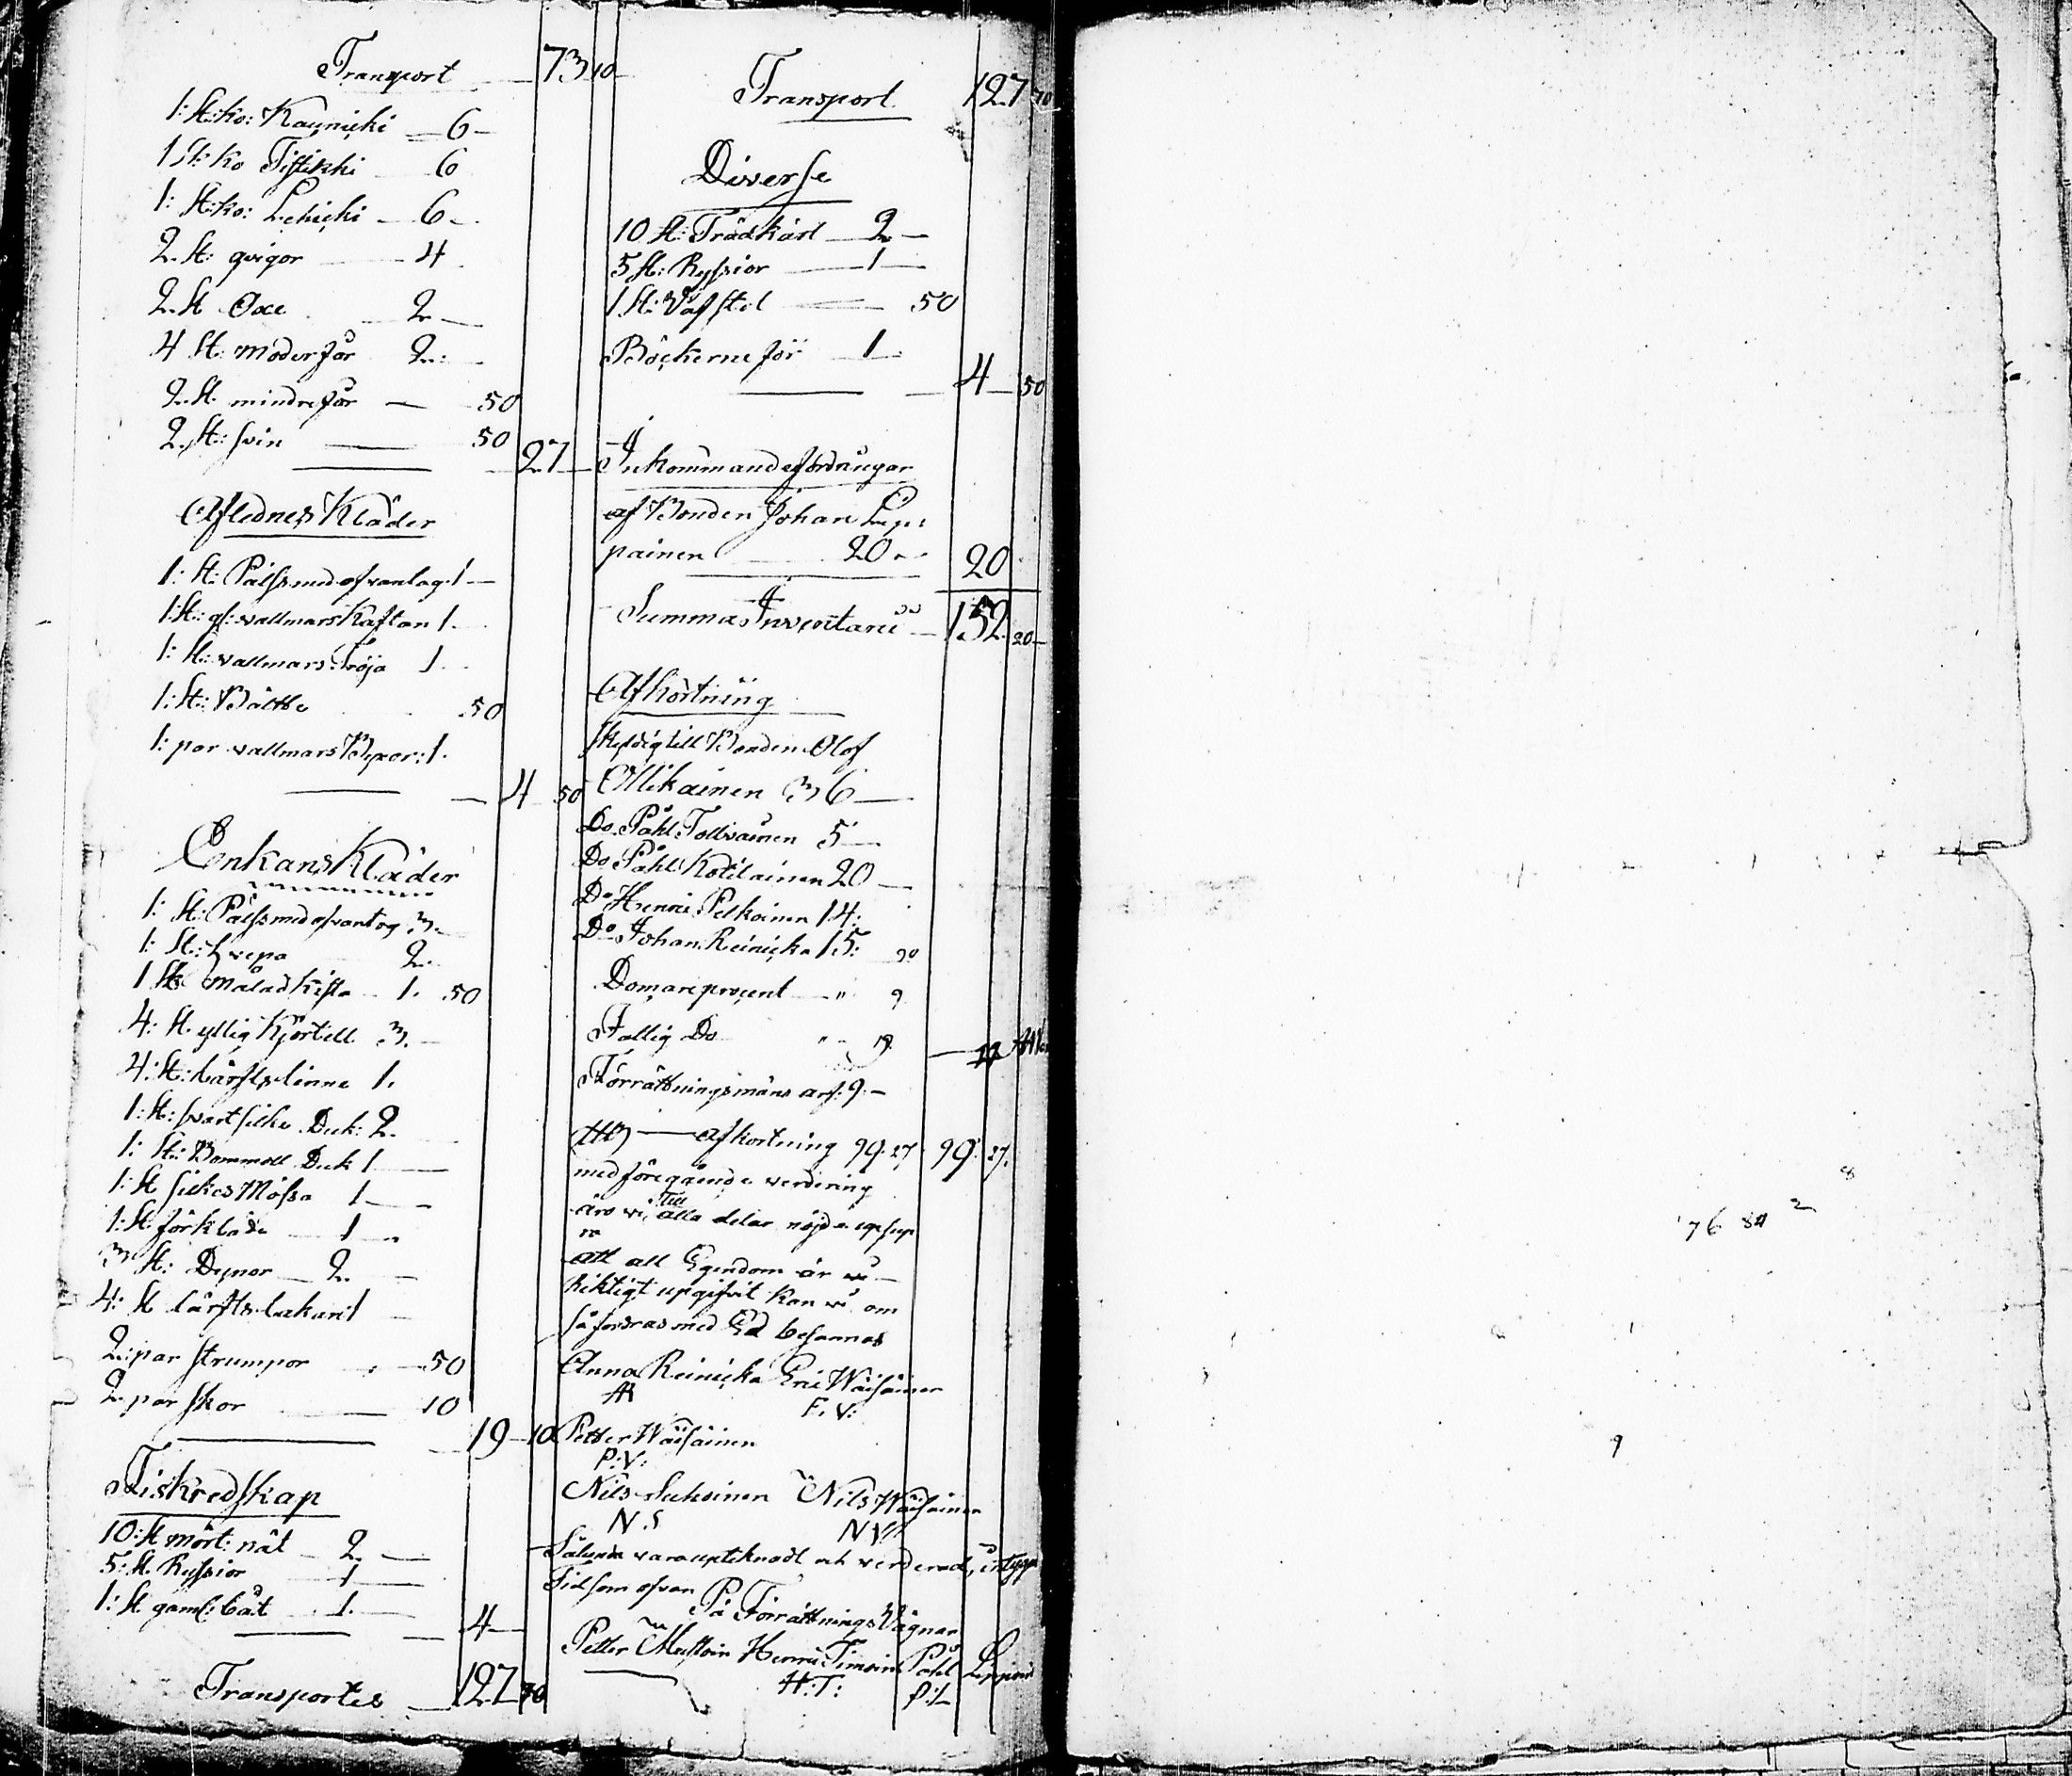 Transport 73 10
1: St: ko: Kaunicki 6
1 St: ko Tistikki 6
1: St: ko: Lehicki 6
2. St: qvigor 4
2. St Oxe 2
4 St: moderfår 2
2. St. mindre får 50
2. St: svin 50
27
Aflednes Kläder
1: St: Päls med ofvantag: 1
1: St: gl: vallmars Kaftan 1
1: St: vallmars Tröja 1
1: St: Bälthe 50
1: par vallmars Bÿxor: 1
4 50
Enkans Kläder
1: St: Päls med ofvantag 3
1: St: Svepa 2
1 St: målad Kista 1. 50
4: St. yllig Kjortell 3.
4: St: lärfts linne 1.
1: St: svart silke Duk: 2.
1: St: Bommoll Duk 1
1: St silkes Mössa 1
1: St. förkläde 1
3 St: Dynor 2
4: St lärfts lakan: 1
2: par strumpor 50
2. par skor 10
19 10
Fiskredskap
10: St mört: nät 2.
5: St. Ryssior 1
1: St gaml: båt 1.
4
Transportes 127 70
Transport 127 70
Diverse
10 St: Trädkärl 2
5 St: Ryssior 1
1 St: Väfsted 50
Böckerne för 1
4 50
Inkommande fordringar
af Bonden Johan Lip:
painen 20
20
Summa Inventarii 152. 20
Afkortning
skyldig till Bonden Olof
Ollikainen 36
Do. Påhl Tollvainen 5
Do Påhl Kotilainen 20
Do Henric Pelkoinen 14:
Do Johan Reinicka 15: 20
Domareprocent " 9
Fattig Do "
Förrättningsmäns arf: 9.
afkortning 99. 27 99. 27.
med föregående verdering
äro vi Till alla delar nöjde
att all Egendom är
Riktigt upgifvit kan vi om
så fordras med Ed besannas
Anna Reinicka Eric Wäisäinen
AR E. V:
Petter Wäisäinen
P: V:
Nils Suhoinen Nils Wäisäinen
N. S N V
Sålunda vara upteknadt och verderad, intyga
Tid som ofvan
På Förrättnings Vägnar
Petter Mustoin Henric Timoin Påhl Lippoin
H: T: P: L
76 84 2 8
9